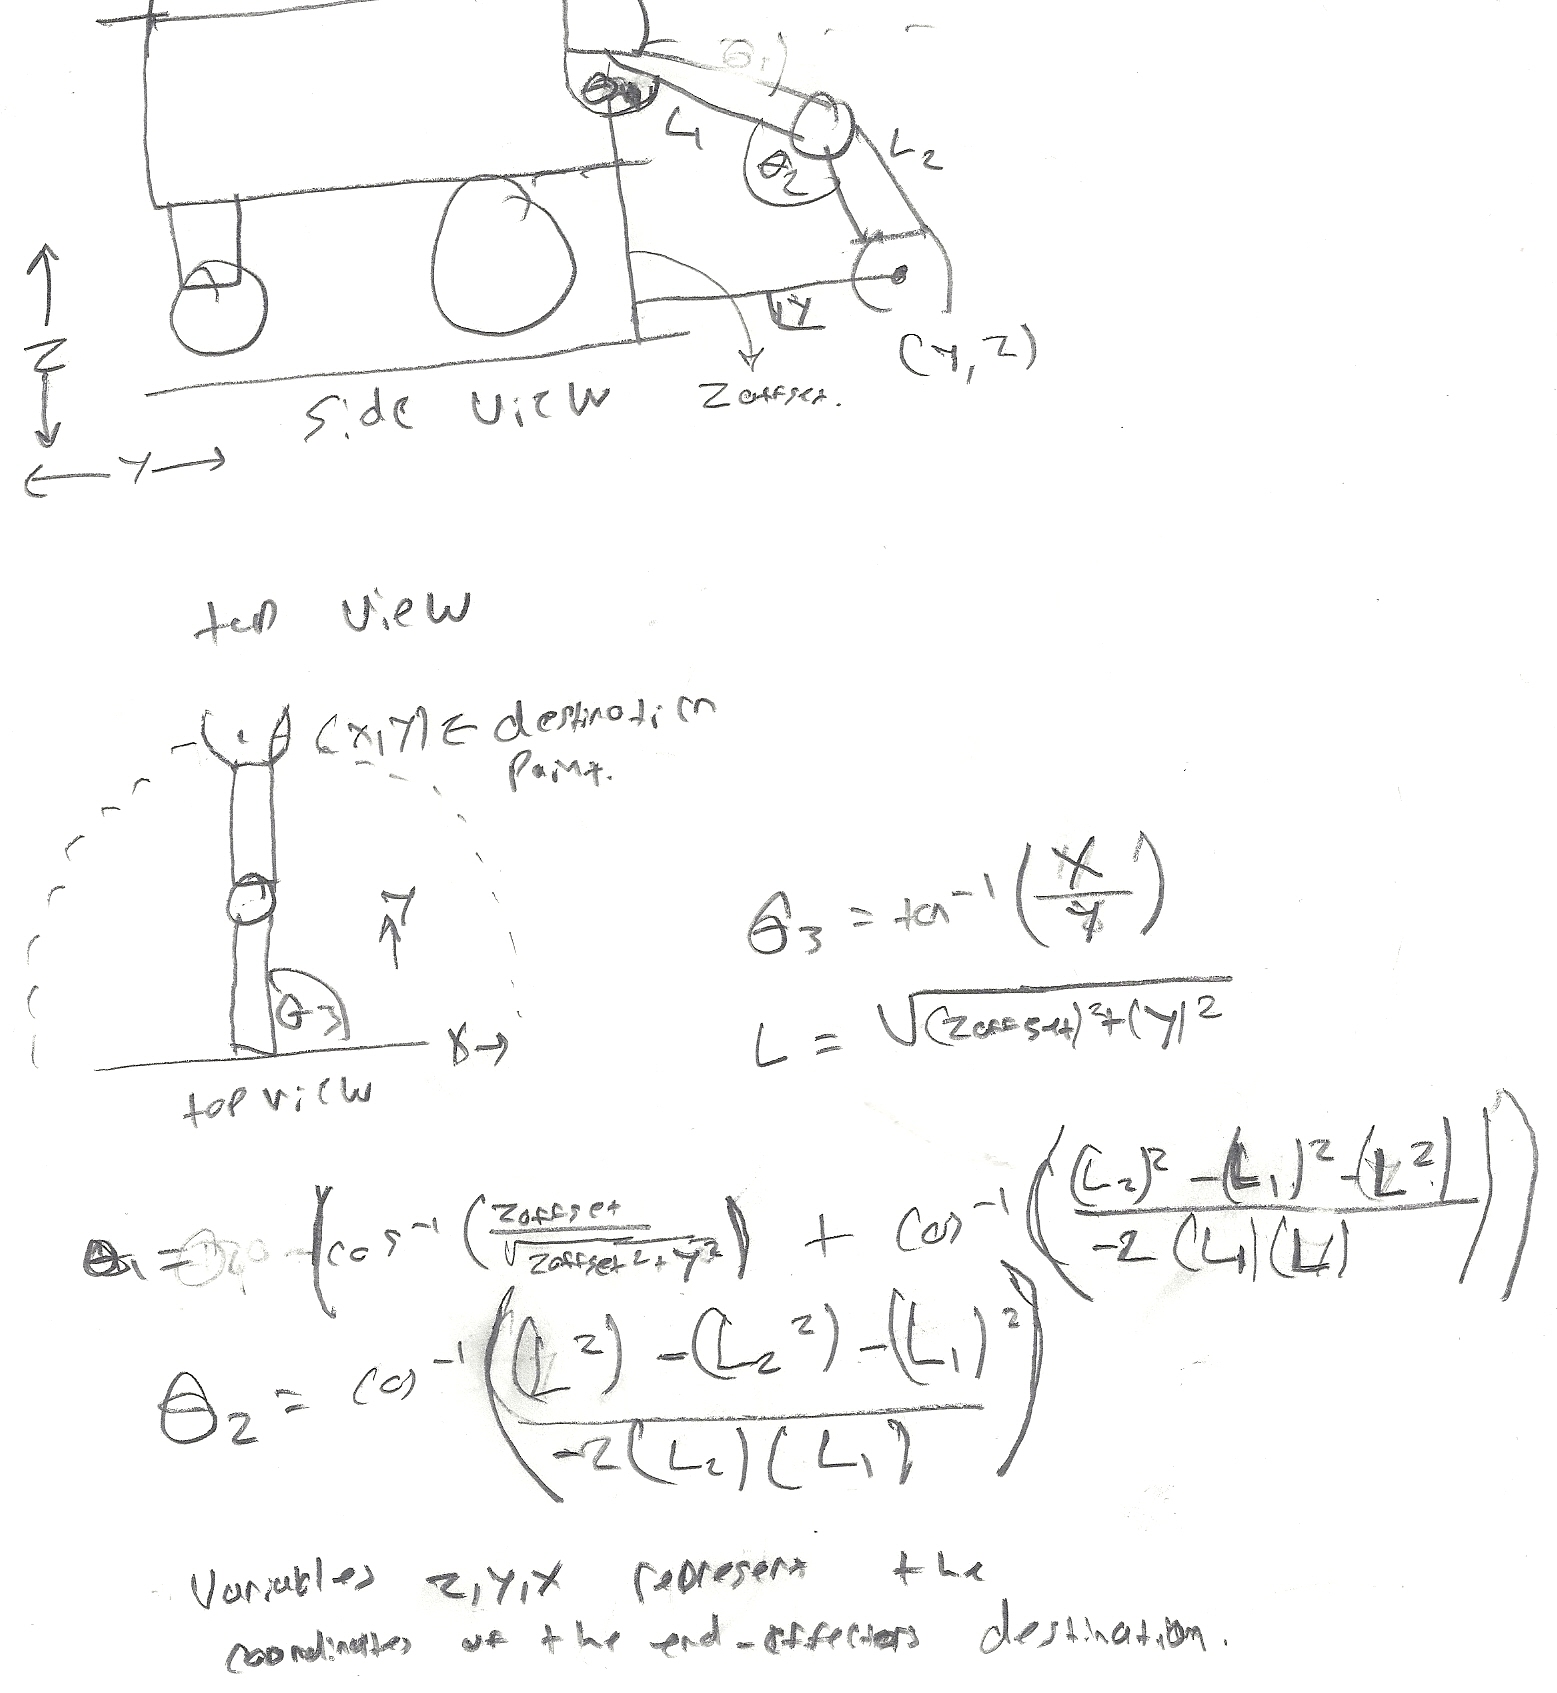 θ₁
θ₁
L₁
L₂
θ₂
Z
y
(y, z)
Z offset.
side view
y
top view
(x, y) ∈ destination
point.
y
θ₃
x
top view
θ₃ = tan⁻¹(x/y)
L = √((Zoffset)² + (y)²)
θ₁ = (cos⁻¹(Zoffset/√(Zoffset² + y²)) + cos⁻¹(((L₂)² - (L₁)² - (L²))/(-2(L₁)(L))))
θ₂ = cos⁻¹(((L²) - (L₂²) - (L₁)²)/(-2(L₂)(L₁)))
Variables z, y, x represent the
coordinates of the end-effectors destination.